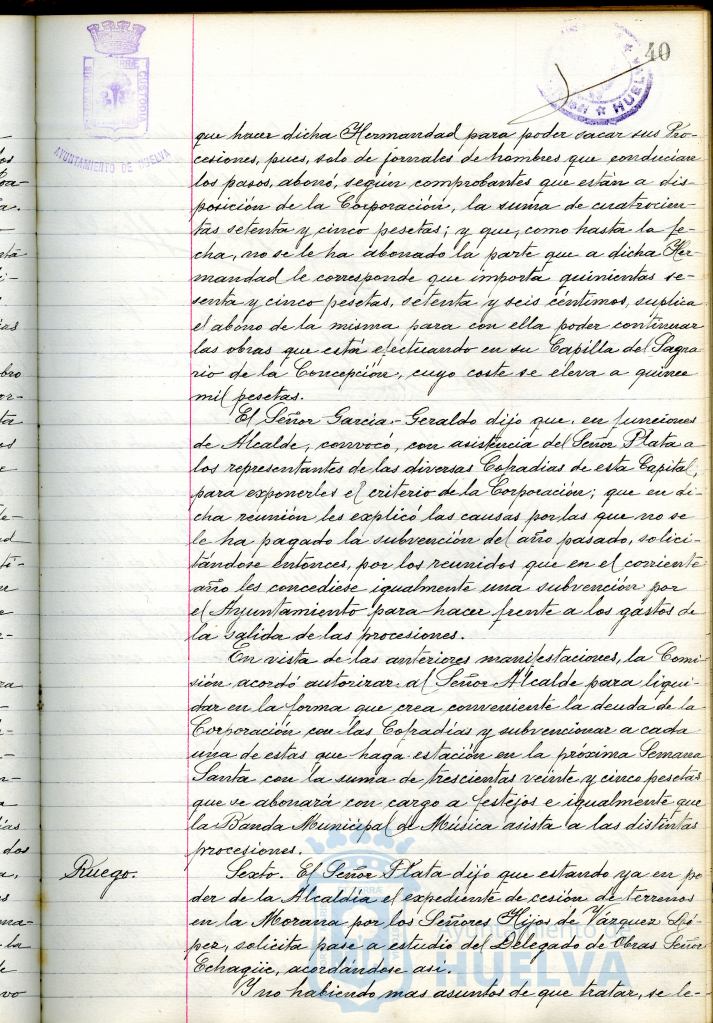 40
AYUNTAMIENTO DE HUELVA
HUELVA
que hacer dicha Hermandad para poder sacar sus Pro-
cesiones, pues, solo de jornales de hombres que conducian
los pasos, abonó, según comprobantes que están a dis-
posición de la Corporación, la suma de cuatrocien-
tas setenta y cinco pesetas; y que, como hasta la fe-
cha, no se le ha abonado la parte que a dicha Her-
mandad le corresponde que importa quinientas se-
senta y cinco pesetas, setenta y seis céntimos, suplica
el abono de la misma para con ella poder continuar
las obras que está efectuando en su Capilla del Sagra-
rio de la Concepción, cuyo coste se eleva a quince
mil pesetas.
El Señor Garcia-Geraldo dijo que, en funciones
de Alcalde, convocó, con asistencia del Señor Plata a
los representantes de las diversas Cofradias de esta Capital,
para exponerles el criterio de la Corporación; que en di-
cha reunión les explicó las causas por las que no se
le ha pagado la subvención del año pasado, solici-
tándose entonces, por los reunidos que en el corriente
año les concediese igualmente una subvención por
el Ayuntamiento para hacer frente a los gastos de
la salida de las procesiones.
En vista de las anteriores manifestaciones, la Comi-
sión acordó autorizar al Señor Alcalde para liqui-
dar en la forma que crea conveniente la deuda de la
Corporación con las Cofradías y subvencionar a cada
una de estas que haga estación en la próxima Semana
Santa con la suma de trescientas veinte y cinco pesetas
que se abonará con cargo a festejos e igualmente que
la Banda Municipal de Música asista a las distintas
procesiones.
Ruego.
Sexto. El Señor Plata dijo que estando ya en po-
der de la Alcaldía el expediente de cesión de terrenos
en la Morana por los Señores Hijos de Vázquez Ló-
pez, solicita pase a estudio del Delegado de Obras Señor
Echagüe, acordándose así.
Y no habiendo mas asuntos de que tratar, se le-
Ayuntamiento de
HUELVA